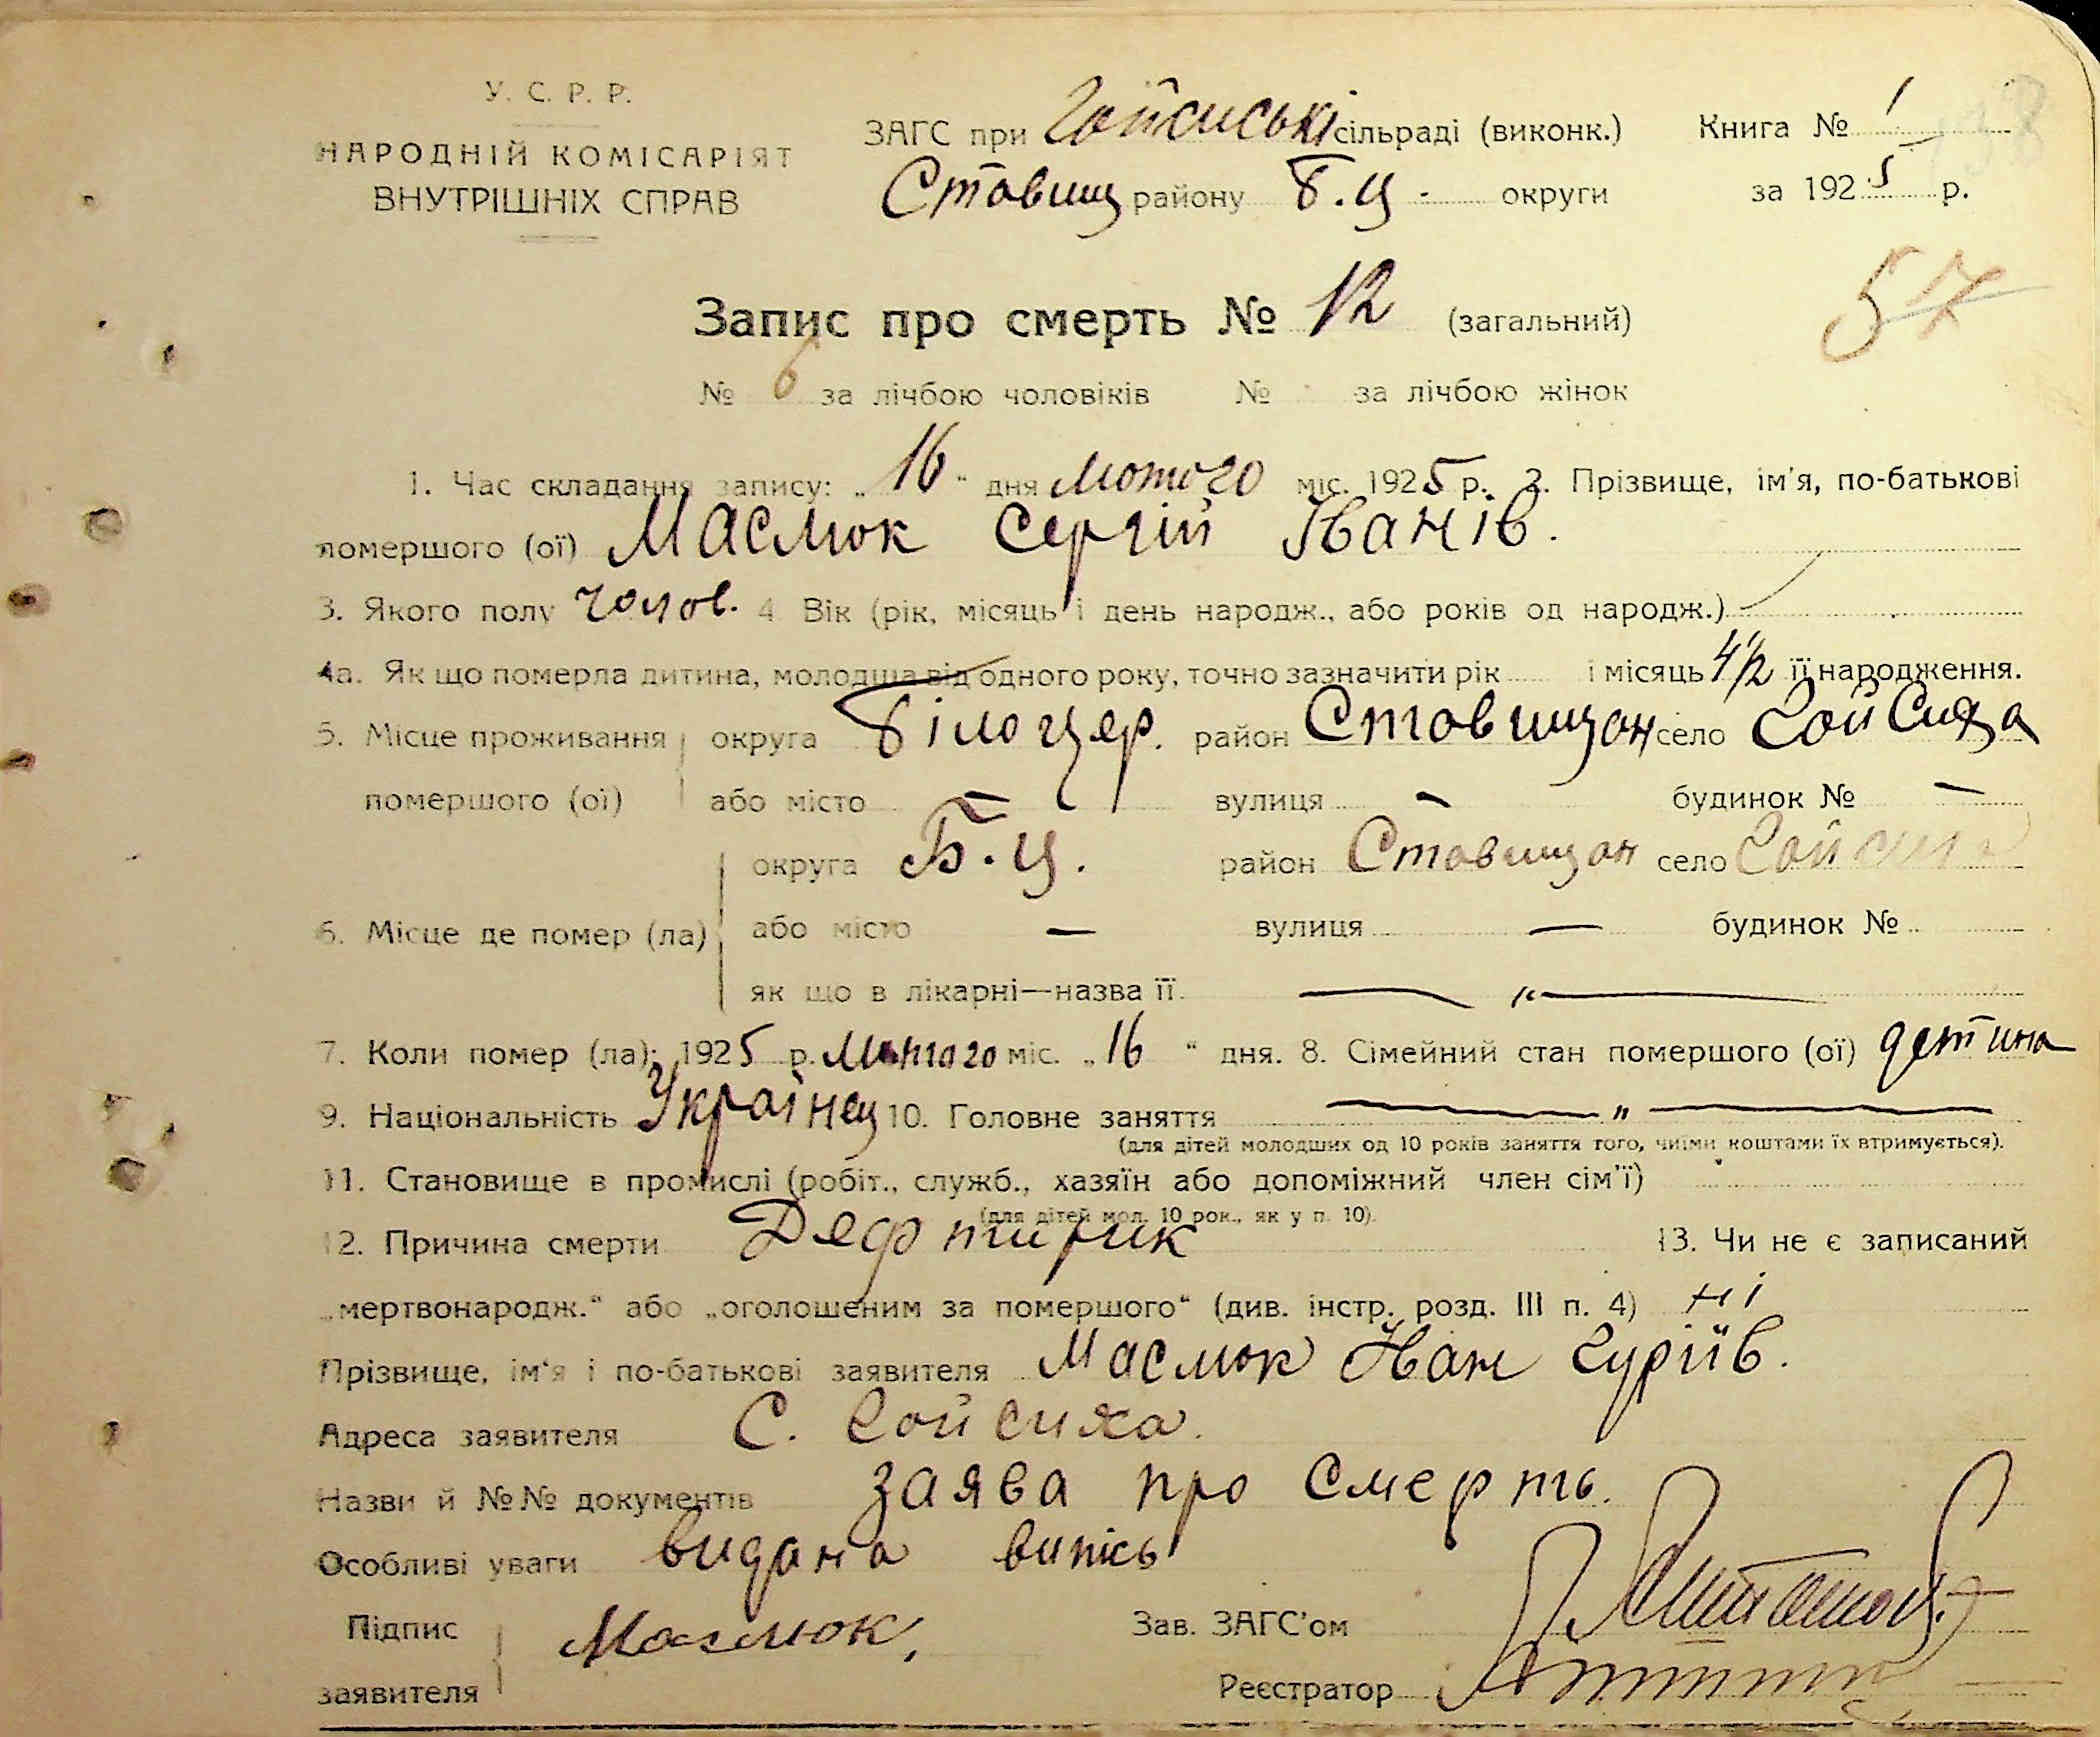 У. С. Р. Р.
НАРОДНІЙ КОМІСАРІЯТ
ВНУТРІШНІХ СПРАВ
ЗАГС при Гойсиській сільраді (виконк.) Книга № 1
Ставищ району Б.Ц - округи за 1925 р.
57
Запис про смерть № 12 (загальний)
№ 6 за лічбою чоловіків № за лічбою жінок
1. Час складання запису: „ 16 " дня Лютого міс. 1925 р. 2. Прізвище, ім'я, по-батькові
помершого (ої) Маслюк Сергій Іванів.
3. Якого полу чолов. 4 Вік (рік, місяць і день народж., або років од народж.)
4а. Як що померла дитина, молодша від одного року, точно зазначити рік і місяць 4 1/2 її народження.
5. Місце проживання округа Білоцер. район Ставищан село Сойсиха
помершого (ої) або місто — вулиця — будинок № —
округа Б.Ц. район Ставищан село
6. Місце де помер (ла) або місто — вулиця — будинок №
як що в лікарні—назва її — „ —
7. Коли помер (ла): 1925 р. Лютого міс. „ 16 " дня. 8. Сімейний стан помершого (ої) детина
9. Національність Українец 10. Головне заняття — „ —
(для дітей молодших од 10 років заняття того, чиїми коштами їх втримується).
11. Становище в промислі (робіт., служб., хазяїн або допоміжний член сім'ї)
(для дітей мол. 10 рок., як у п. 10).
12. Причина смерти Дефтирик 13. Чи не є записаний
„мертвонародж." або „оголошеним за помершого" (див. інстр. розд. III п. 4) ні
Прізвище, ім'я і по-батькові заявителя Маслюк Іван Гуріїв.
Адреса заявителя С. Сойсиха.
Назви й №№ документів заява про смерть.
Особливі уваги видана випісь
Підпис Маслюк, Зав. ЗАГС'ом
заявителя Реєстратор